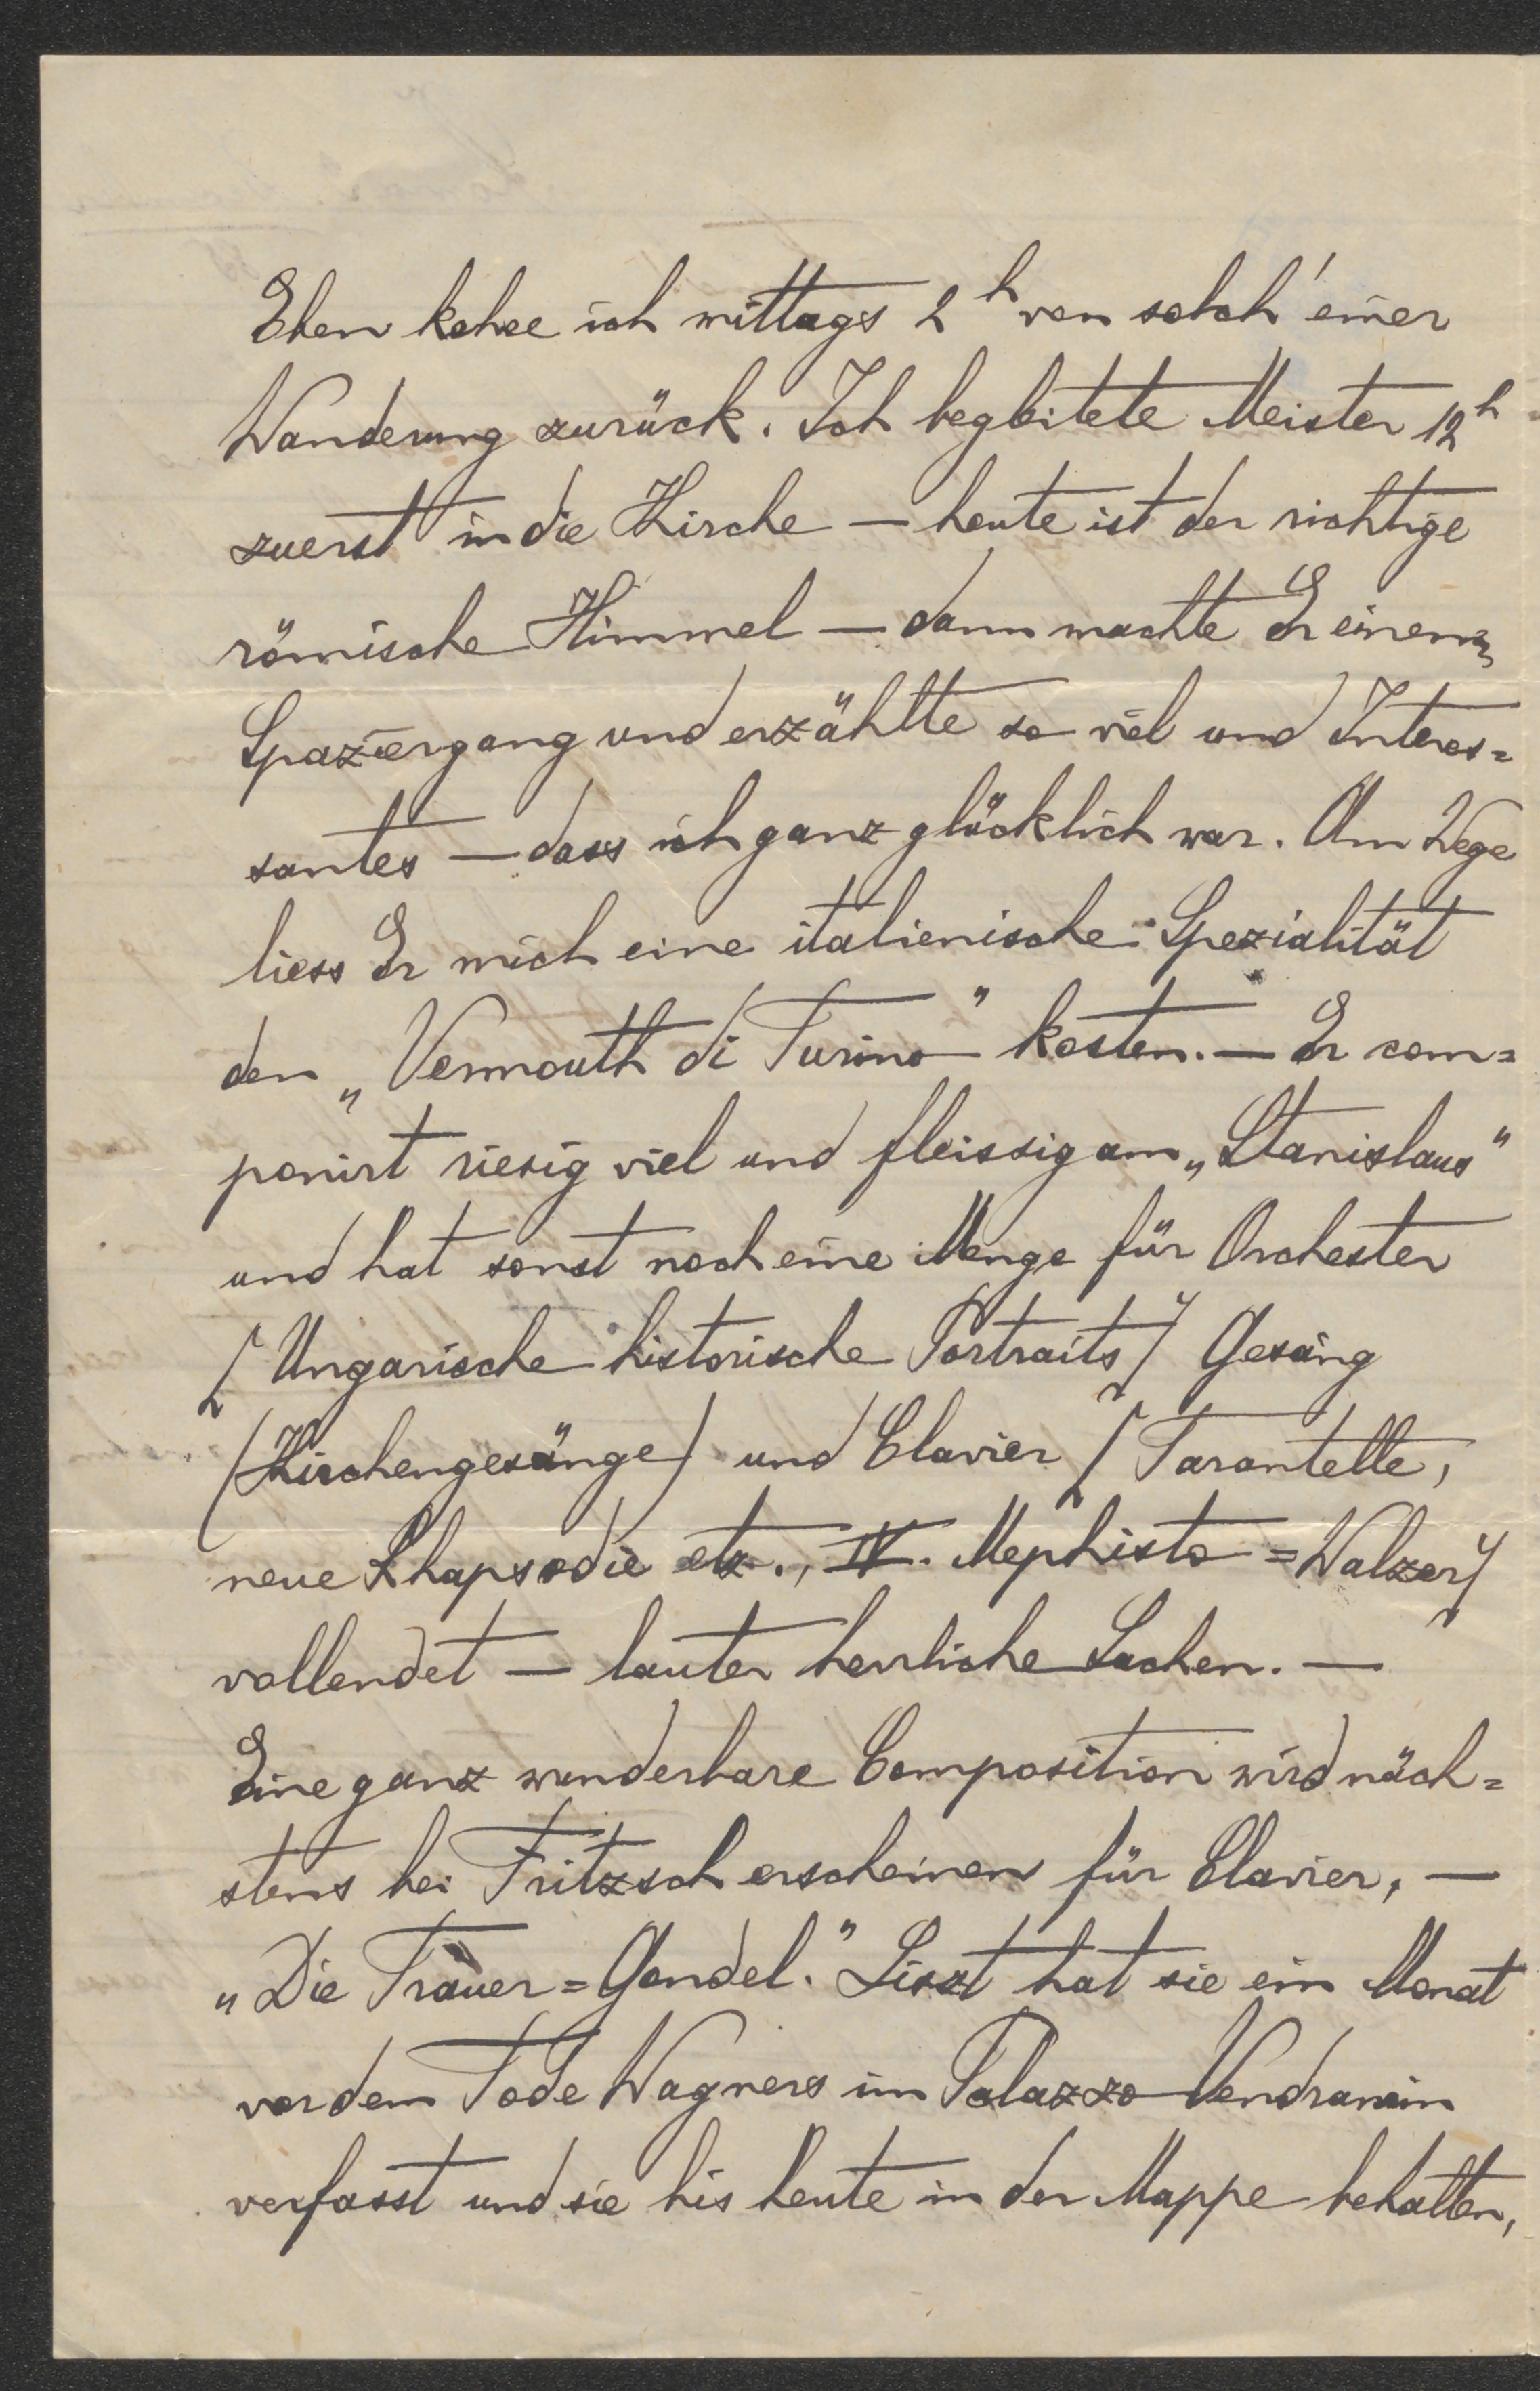 Eben kehre ich mittags 2h von solch' einer
Wanderung zurück. Ich begleitete Meister 12h
zuerst in die Kirche — heute ist der richtige
römische Himmel — dann machte Er einen
Spaziergang und erzählte so viel und Interes=
santes — dass ich ganz glücklich war. Am Wege
liess Er mich eine italienische Spezialität
den „Vermouth di Turino" kosten. — Er com=
ponirt riesig viel und fleissig am „Stanislaus"
und hat sonst noch eine Menge für Orchester
[Ungarische historische Portraits] Gesang
(Kirchengesänge) und Clavier [Tarantelle,
neue Rhapsodie etz., IV. Mephisto=Walzer]
vollendet — lauter herrliche Sachen. —
Eine ganz wunderbare Composition wird näch=
stens bei Fritzsch erscheinen für Clavier, —
„Die Trauer=Gondel." Liszt hat sie ein Monat
vor dem Tode Wagners im Palazzo Vendramin
verfasst und sie bis heute in der Mappe behalten,